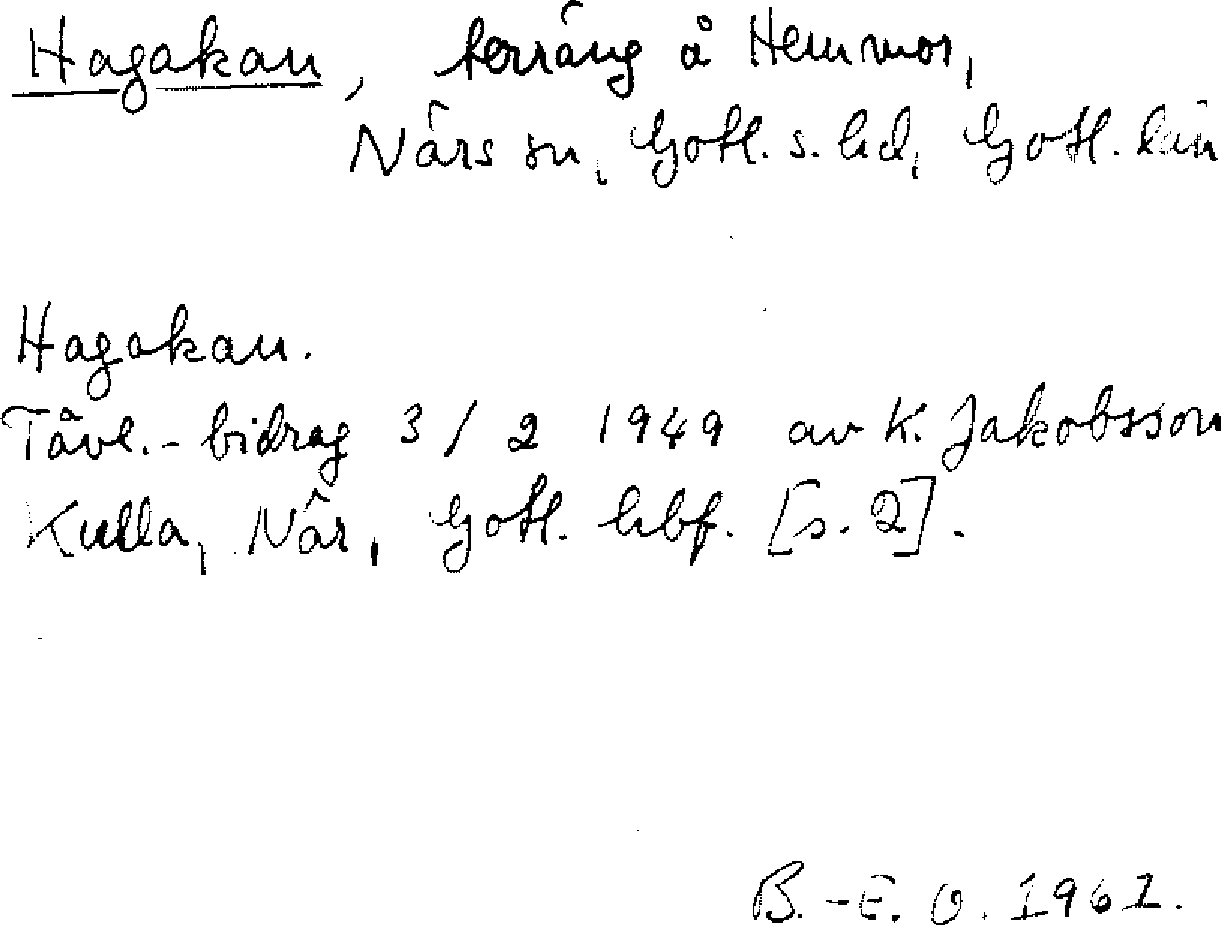 Hagakan, terräng å Hemmor,
Närs sn, Gotl. s. hd, Gotl. län
Hagakan.
Tävl.-bidrag 3/2 1949 av K. Jakobsson
Kulla, När, Gotl. hbf. [s. 2].
B.-E. O. 1961.